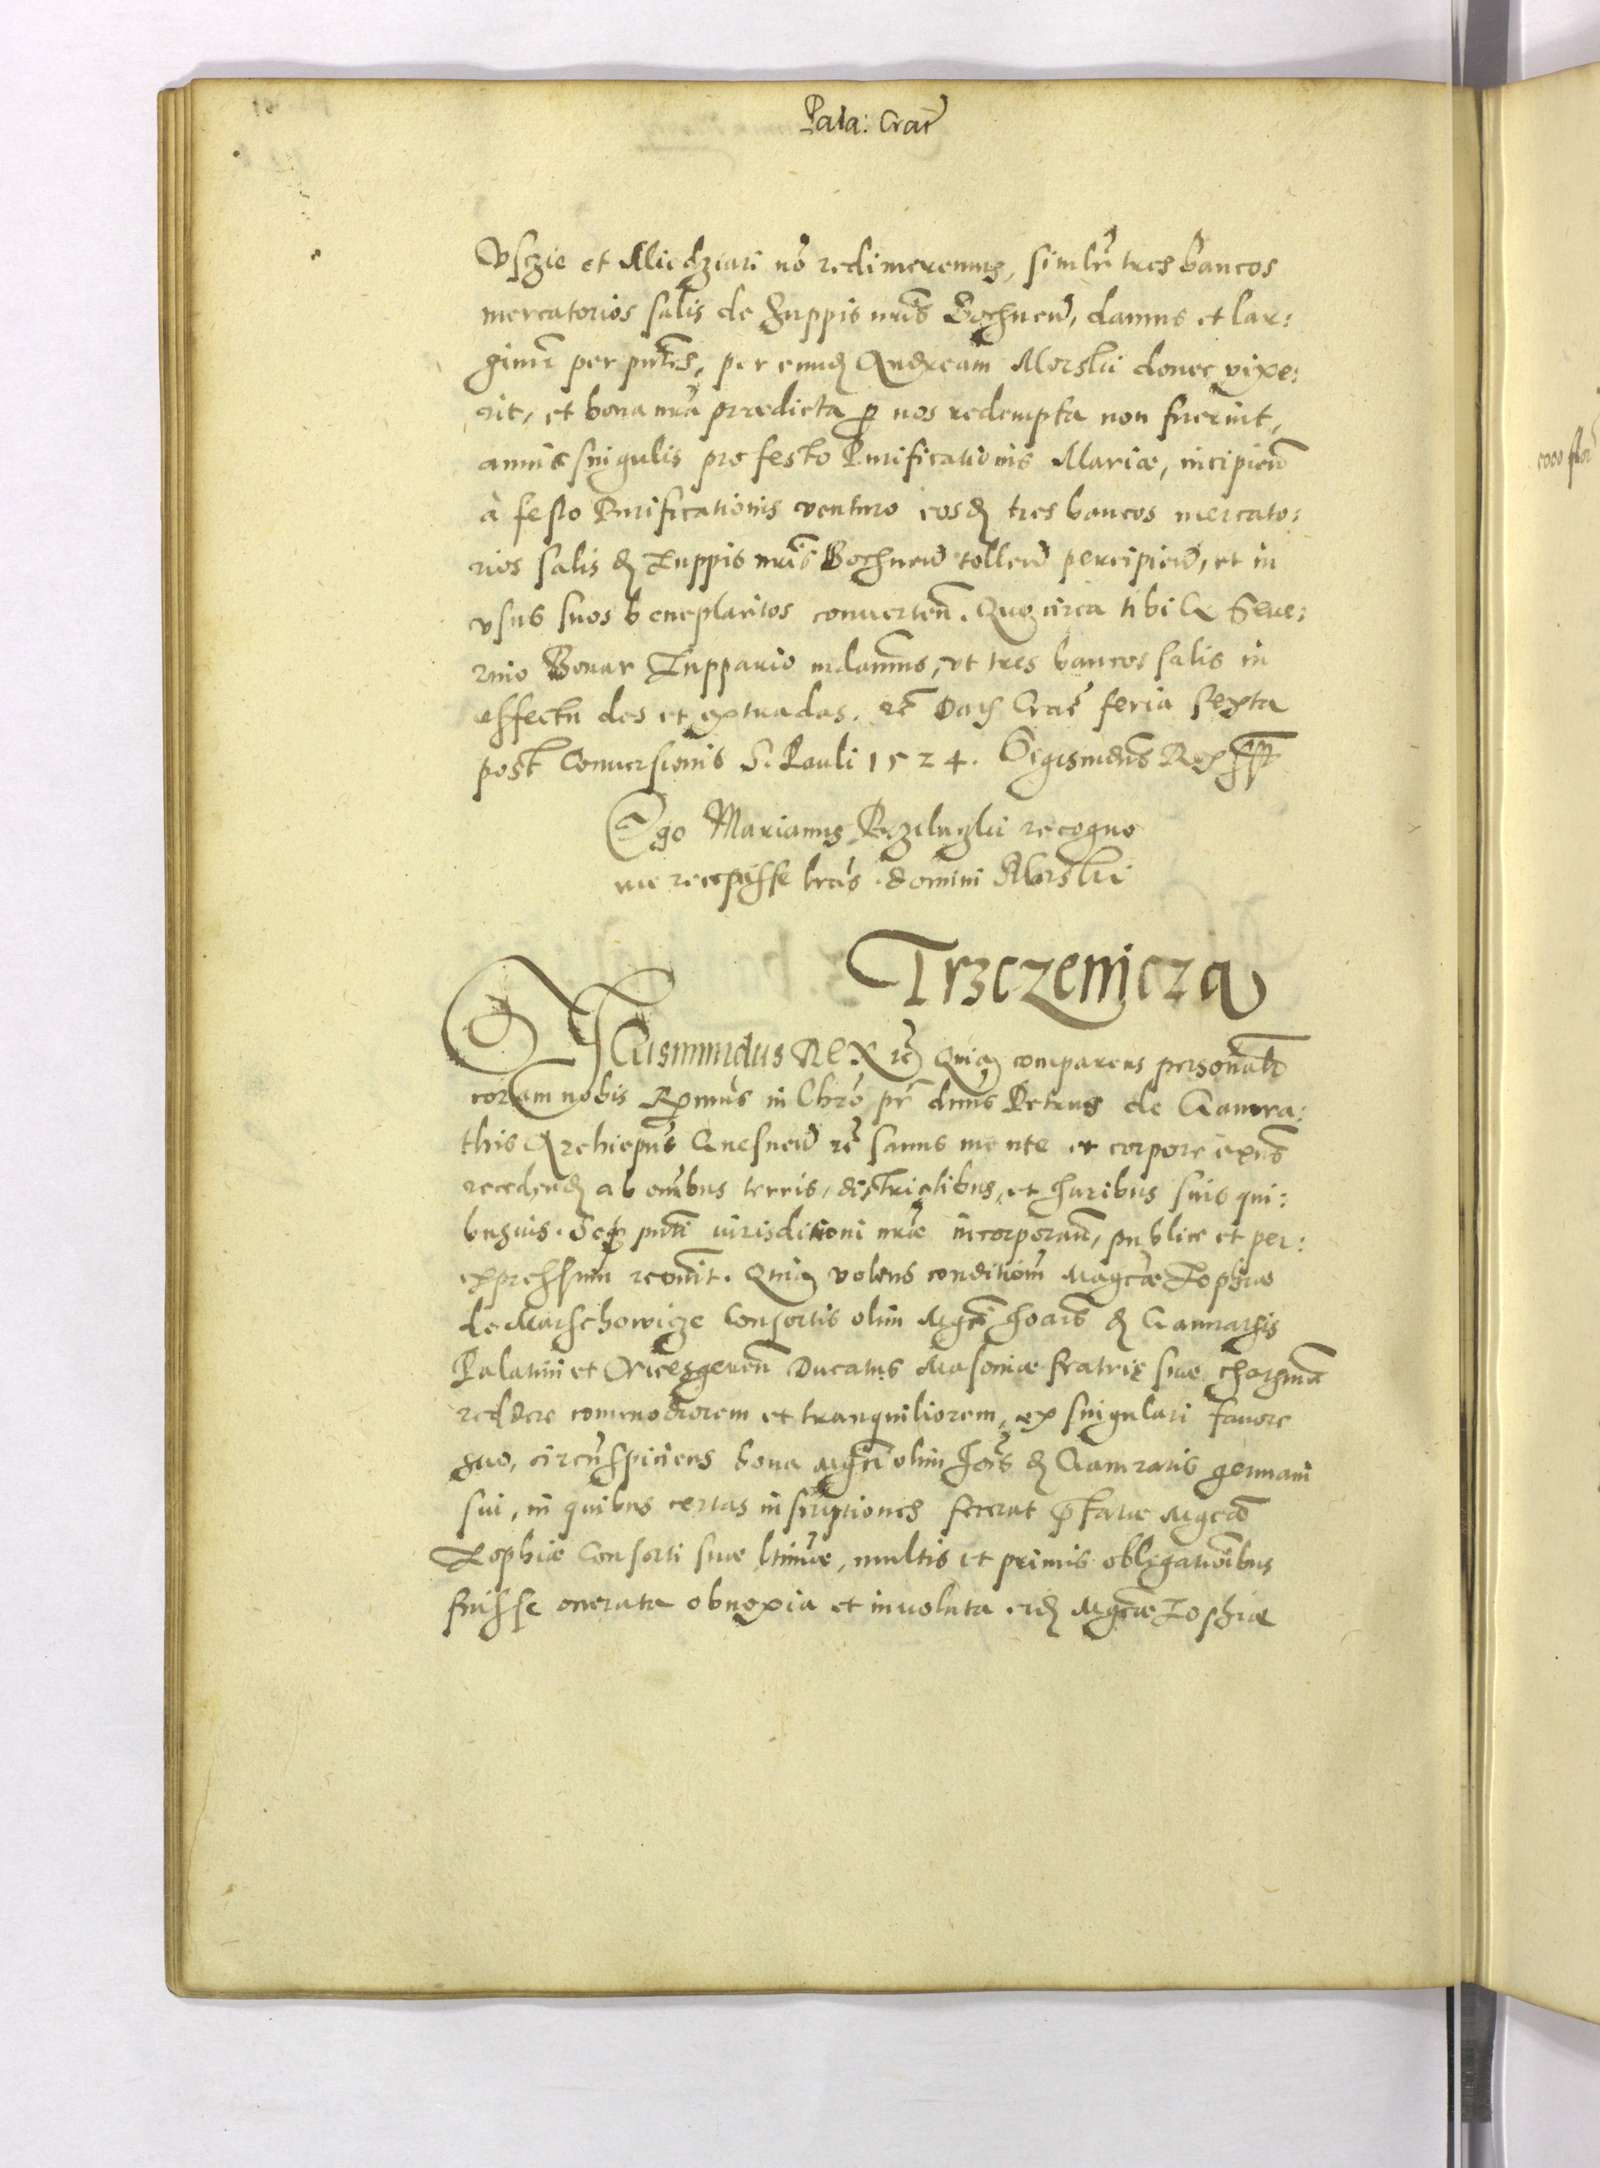 Pala: Crac̃
Vsczie et Miedzwari nõ redimeremus, similr̃ tres bancos
mercatorios salis de Zuppis nris̃ Bochneñ, damus et lar:
gimur̃ per pn̄tes, per eund̃ Andream Morski donec vixe:
rit, et bona nrã praedicta p nos redempta non fuerint,
annis singulis pro festo Purificationis Mariæ, incipieñ
à festo Purificationis venturo eosd̃ tres bancos mercato:
rios salis d̃ Zuppis nris̃ Bochneñ tolleñ percipieñ, et in
vsus suos beneplacitos converteñ. Quocirca tibi G Seue:
rino Bonar Zuppario mdamus, vt tres bancos salis in
effectu des et extradas. rc̃ Datʒ Crac̃ feria sexta
post Conuersionis S. Pauli 1524. Sigismdũs Rex sspt
Ego Marianus Prziluzki recogno
me recepisse lrãs domini Morski
Trzczenicza
SIGismundus REX rc̃ Quia comparens personalr̃
coram nobis Rxmũs in Chrõ pr̃ dnũs Petrus de Gamra:
this Archiepũs Gnesneñ rc̃ sanus mente et corpore exñs
recedend̃ ab omibus terris, districtibus, et Juribus suis qui:
busuis. Seqʒ pnti iurisditioni nræ incorporañ, publice et per:
expressum recouit. Quia volens conditionẽ Magcæ Zophiæ
de Marschowicze Consortis olim Mgci Joañs d̃ Gamrathis
Palatini et Vicesgereñ Ducatus Masoviæ fratris sui charissimi
reddere commodiorem et tranquiliorem, ex singulari fauore
suo, circũspiciens bona Mgci olim Joañs d̃ Gamratis germani
sui, in quibus certas inscriptiones fecerat pfatæ Mgcæ
Zophiæ Consorti suæ ltimæ, multis et primis obligationibus
fuisse onerata obnoxia et involuta eid̃ Mgcæ Zophiæ